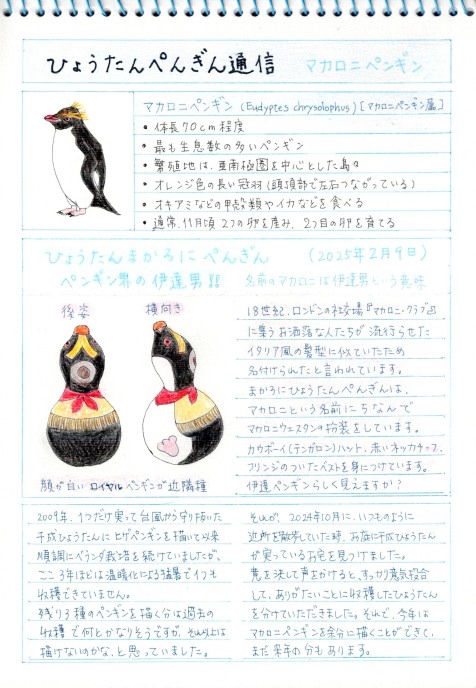 ひょうたんぺんぎん通信 マカロニペンギン
マカロニペンギン (Eudyptes chrysolophus) [マカロニペンギン属]
・体長70cm程度
・最も生息数の多いペンギン
・繁殖地は、亜南極圏を中心とした島々
・オレンジ色の長い冠羽(頭頂部で左右つながっている)
・オキアミなどの甲殻類やイカなどを食べる
・通常、11月頃 2つの卵を産み、2つ目の卵を育てる
ひょうたんまかろにぺんぎん (2025年2月9日)
ペンギン界の伊達男!! 名前のマカロニは伊達男という意味
後姿 横向き
顔が白いロイヤルペンギンが近隣種
18世紀、ロンドンの社交場『マカロニ・クラブ』
に集うお洒落な人たちが流行らせた
イタリア風の髪型に似ていたため
名付けられたと言われています。
まかろにひょうたんぺんぎんは、
マカロニという名前にちなんで
マカロニウェスタンの扮装をしています。
カウボーイ(テンガロン)ハット、赤いネッカチーフ、
フリンジのついたベストを身につけています。
伊達ペンギンらしく見えますか?
2009年、1つだけ実って台風から守り抜いた
千成ひょうたんにヒゲペンギンを描いて以来
順調にベランダ栽培を続けていましたが、
ここ3年ほどは温暖化による猛暑で1つも
収穫できていません。
残り3種のペンギンを描く分は過去の
収穫で何とかなりそうですが、それ以上は
描けないのかな、と思っていました。
それが、2024年10月に、いつものように
近所を散歩していた時、お庭に千成ひょうたん
が実っているお宅を見つけました。
意を決して声をかけると、すっかり意気投合
して、ありがたいことに収穫したひょうたん
を分けていただきました。それで、今年は
マカロニペンギンを余分に描くことができて、
まだ来年の分もあります。